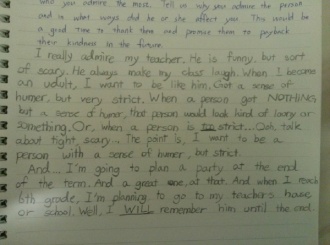 who you admire the most. Tell in why you admire the person
and in what ways did he or she affect you. This would be
a good time to thank them and promise them to payback
their kindness in the future.
I really admire my teacher. He is funny, but sort
of scary. He always make my class laugh. When I become
an udult, I want to be like him. Got a sense of
humer, but very strict. When a person got NOTHING
but a sense of humer, that person would look kind of loony or
something. Or, when a person is TOO strict... Ooh, talk
about tight, scary... The point is, I want to be a
person with a sense of humer, but strict.
And... I'm going to plan a party at the end
of the term. And a great one, at that. And when I reach
6th grade, I'm planning to go to my teacher's house
or school. Well, I WILL remember him until the end.